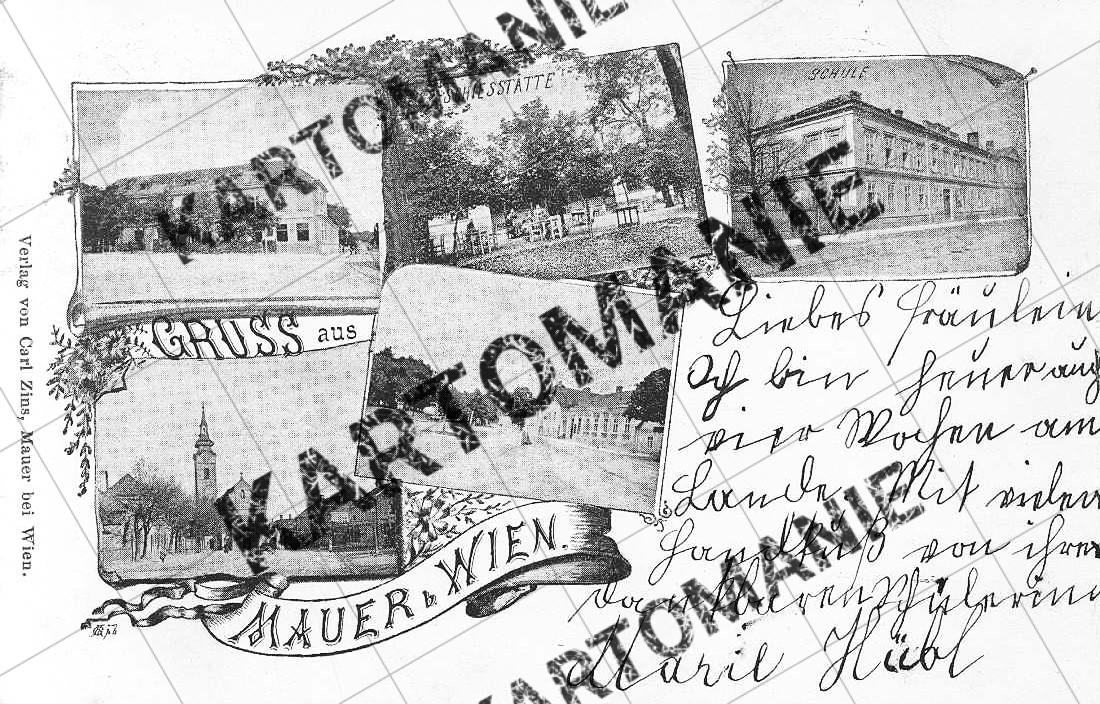 SCHIESSTÄTTE
SCHULE
GRUSS aus
MAUER b. WIEN.
Verlag von Carl Zins, Mauer bei Wien.
Liebes Fräulein
Ich bin heuer auch
vier Wochen am
Lande. Mit vielen
Handkuß von ihrer
dankbaren Schülerinn
Marie Hübl
KARTOMANIE
KARTOMANIE
KARTOMANIE
KARTOMANIE